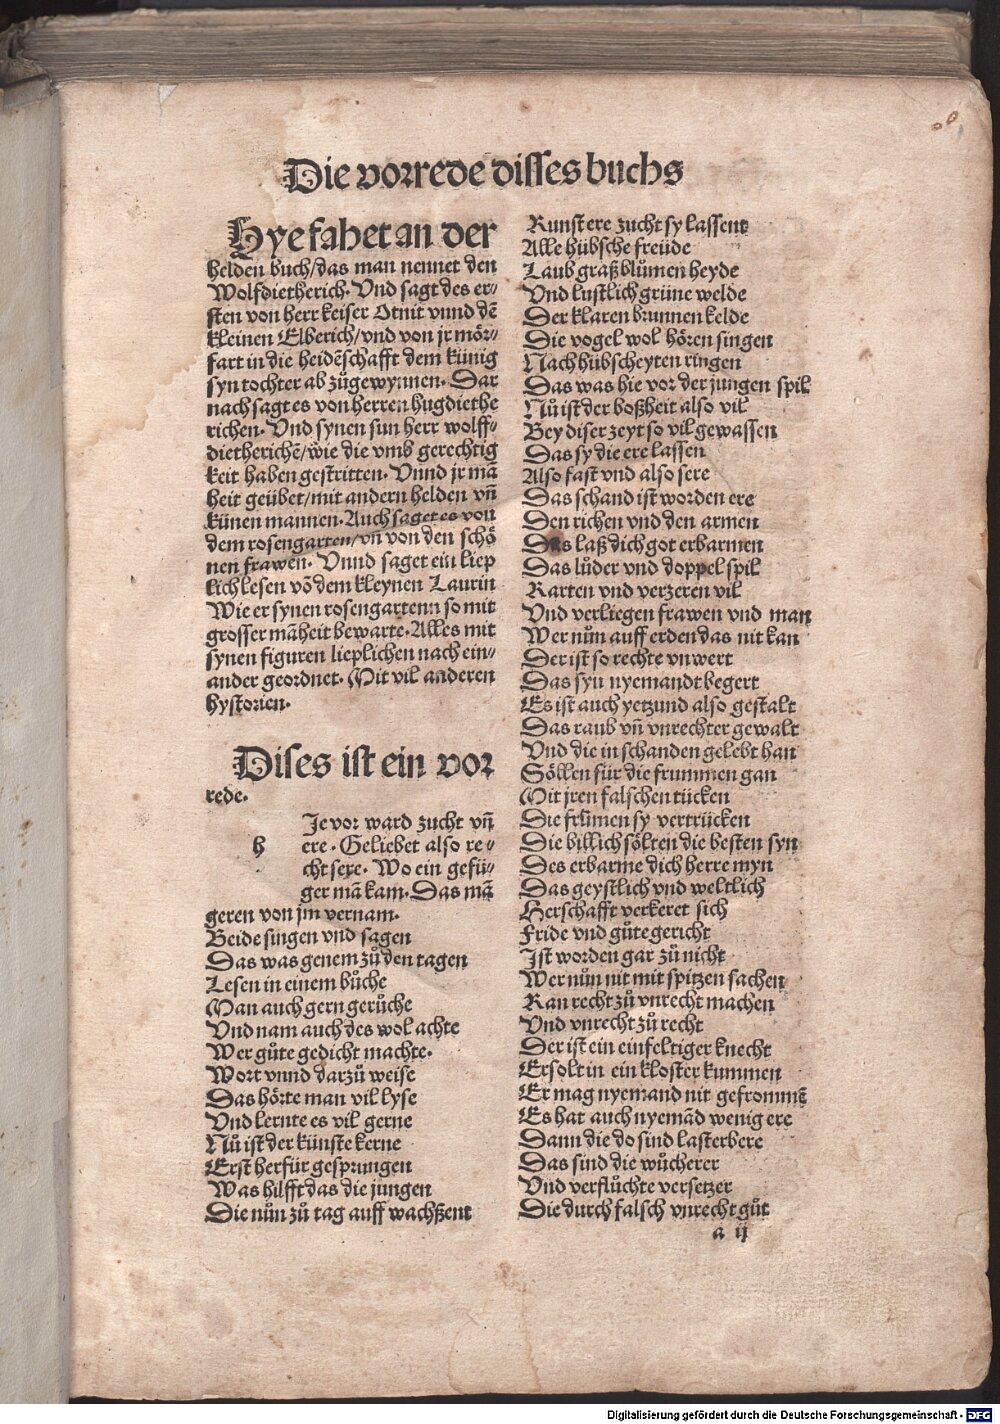 Die vorrede disses buchs
Hye fahet an der
helden buch/das man nennet den
Wolfdietherich. Vnd sagt des er⸗
sten von herr keiser Otnit vnnd dē
kleinen Elberich/vnd von jr mör⸗
fart in die heidēschafft dem künig
syn tochter ab zůgewynnen. Dar
nach sagt es von herren hugdiethe
richen. Vnd synen sun herr wolff⸗
dietherichē/wie die vmb gerechtig
keit haben gestritten. Vnnd jr mā
heit geübet/mit andern helden vn̄
künen mannen. Auch saget es von
dem rosengarten/vn̄ von den schö
nen frawen. Vnnd saget ein liep
lich lesen vō dem kleynen Laurin
Wie er synen rosengartenn so mit
grosser māheit bewarte. Alles mit
synen figuren lieplichen nach ein⸗
ander geordnet. Mit vil anderen
hystorien.
Dises ist ein vor
rede.
h Je vor ward zucht vn̄
ere. Geliebet also re⸗
cht sere. Wo ein gefü⸗
ger mā kam. Das mā
geren von jm vernam.
Beide singen vnd sagen
Das was genem zů den tagen
Lesen in einem bůche
Man auch gern gerůche
Vnd nam auch des wol achte
Wer gůte gedicht machte.
Wort vnnd darzů weise
Das hörte man vil lyse
Vnd lernte es vil gerne
Nů ist der künste kerne
Erst herfür gesprungen
Was hilfft das die jungen
Die nůn zů tag auff wachßent
Kunst ere zucht sy lassent
Alle hübsche freüde
Laub graß blůmen heyde
Vnd lustlich grüne welde
Der klaren brunnen kelde
Die vogel wol hören singen
Nach hübscheyten ringen
Das was hie vor der jungen spil
Nů ist der boßheit also vil
Bey diser zeyt so vil gewassen
Das sy die ere lassen
Also fast vnd also sere
Das schand ist worden ere
Den richen vnd den armen
Das laß dich got erbarmen
Das lůder vnd doppel spil
Karten vnd verzeren vil
Vnd verliegen frawen vnd man
Wer nůn auff erden das nit kan
Der ist so rechte vnwert
Das syn nyemandt begert
Es ist auch yetzund also gestalt
Das raub vn̄ vnrechter gewalt
Vnd die in schanden gelebt han
Söllen für die frummen gan
Mit jren falschen tücken
Die frůmen sy vertrücken
Die billich sölten die besten syn
Des erbarme dich herre myn
Das geystlich vnd weltlich
Herschafft verkeret sich
Fride vnd gůte gericht
Ist worden gar zů nicht
Wer nůn nit mit spitzen sachen
Kan recht zů vnrecht machen
Vnd vnrecht zů recht
Der ist ein einfeltiger knecht
Er solt in ein kloster kummen
Er mag nyemand nit gefrommē
Es hat auch nyemād wenig ere
Dann die do sind lasterbere
Das sind die wůcherer
Vnd verflůchte versetzer
Die durch falsch vnrecht gůt
a ij
Digitalisierung gefördert durch die Deutsche Forschungsgemeinschaft - DFG